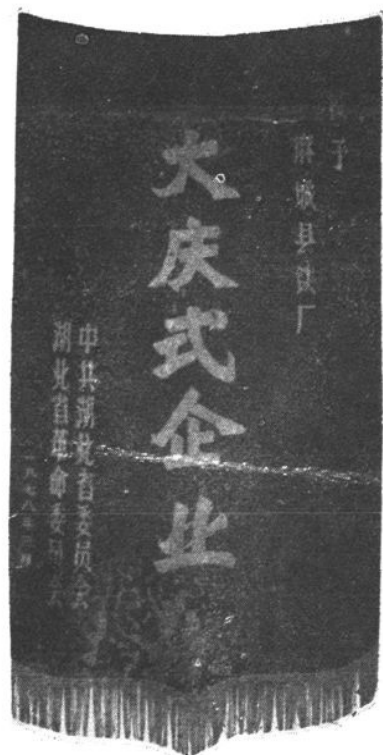 予
麻城县铁厂
大庆式企业
中共湖北省委员会
湖北省革命委员会
一九七八年